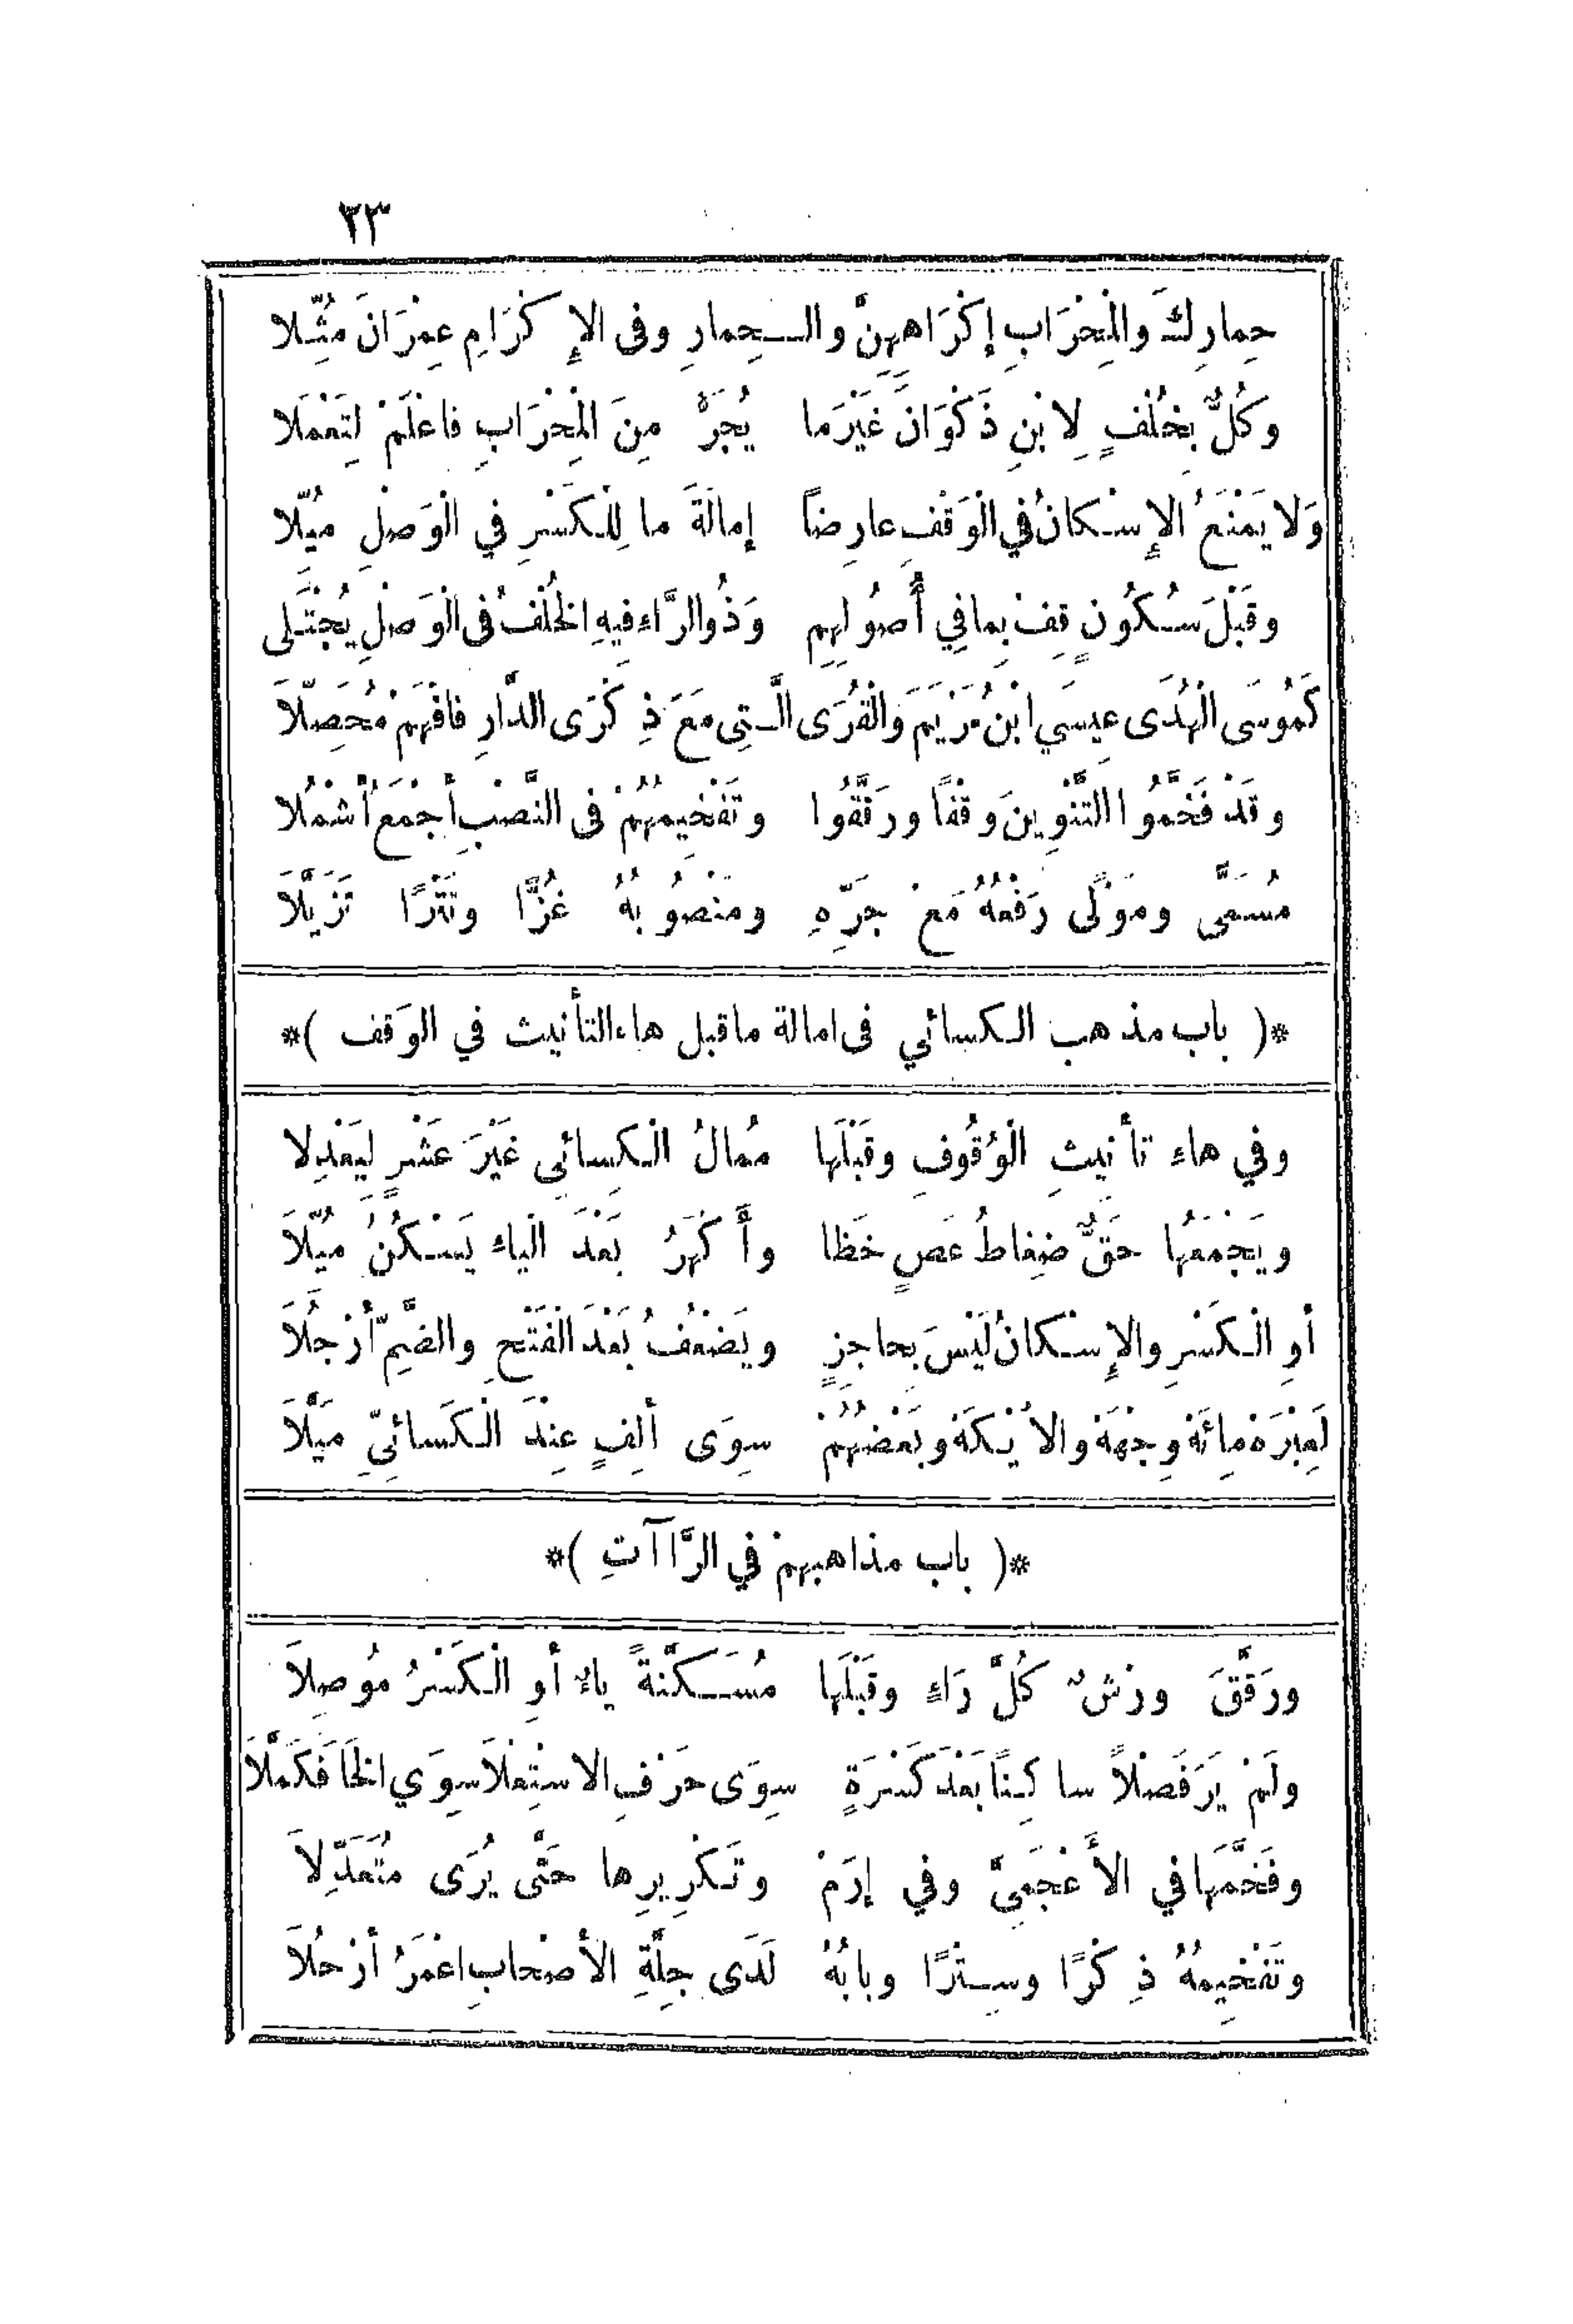 ٢٣
حِمارِكَ والْمِحْرَابِ إِكْرَاهِهِنَّ والـحِمارِ وفى الإِكْرَامِ عِمْرَانَ مُثِّلا
وَكُلٌّ بِخُلْفٍ لِابْنِ ذَكْوَانَ غَيْرَ ما يُجَرُّ مِنَ الْمِحْرَابِ فاعْلَمْ لِتَعْمَلا
وَلا يَمْنَعُ الإِسْكانُ في الْوَقْفِ عارِضاً إِمالَةَ ما لِلْكَسْرِ فِي الْوَصْلِ مُيِّلا
وقَبْلَ سُكُونٍ قِفْ بِما فِي أُصُولِهِمِ وَذُو الرَّاءِ فِيهِ الخُلْفُ فى الْوَصْلِ يُجْتَلى
كَمُوسَى الْهُدَى عِيسَي ابْنُ مَرْيَمَ وَالْقُرَى الَّـتِى مَعَ ذِكْرَى الدَّارِ فافْهَمْ مُحَصِّلاَ
وقَدْ فَخَّمُوا التَّنْوِينَ وَقْفًا ورَقَّقُوا وتَفْخِيمُهُمْ فى النَّصْبِ أجْمَعُ أشْمُلا
مُسَمَّى ومَوْلًى رَفْعُهُ مَعْ جَرِّهِ ومَنْصُوبُهُ غُزًّا وتَتْرًا تَزَيَّلاَ
*( باب مذهب الكسائي فى امالة ماقبل هاء التأنيث في الوَقف )*
وفي هاءِ تأنيثِ الْوُقُوفِ وقَبْلَها مُمالُ الْكِسائِى غَيْرَ عَشْرٍ لِيَعْدِلا
ويَجْمَعُها حَقٌّ ضِغاطُ عَصٍ خَظا وأَكْهَرُ بَعْدَ الْياءِ يَسْكُنُ مُيِّلاَ
أوِ الْكَسْرِ والإِسْكانُ لَيْسَ بِحاجِزٍ ويَضْعُفُ بَعْدَ الفَتْحِ والضَّمِّ أرْجُلاَ
لَعِبْرَهْ مِائَهْ وِجْهَهْ والاَيْكَهْ وبَعْضُهُمْ سِوَى ألِفٍ عِنْدَ الْكِسائِيِّ مَيَّلاَ
*( باب مذاهبهمْ في الرَّاآتِ )*
ورَقَّقَ ورْشٌ كُلَّ رَاءٍ وقَبْلَها مُسَكَّنَةً ياءٌ أوِ الْكَسْرُ مُوصِلاَ
ولَمْ يَرَ فَصْلاً ساكِنًا بَعْدَ كَسْرَةٍ سِوَى حَرْفِ الاسْتِعْلاَ سِوَي الخَا فَكَمَّلاَ
وفَخَّمَها في الأَعْجَمِىِّ وفي إِرَمْ وتَكْرِيرِها حَتَّى يُرَى مُتَعَدِّلاَ
وتَفْخِيمُهُ ذِكْرًا وسِتْرًا وبابُهُ لَدَى جِلَّةِ الأصْحابِ اعْمَرُ أرْحُلاَ